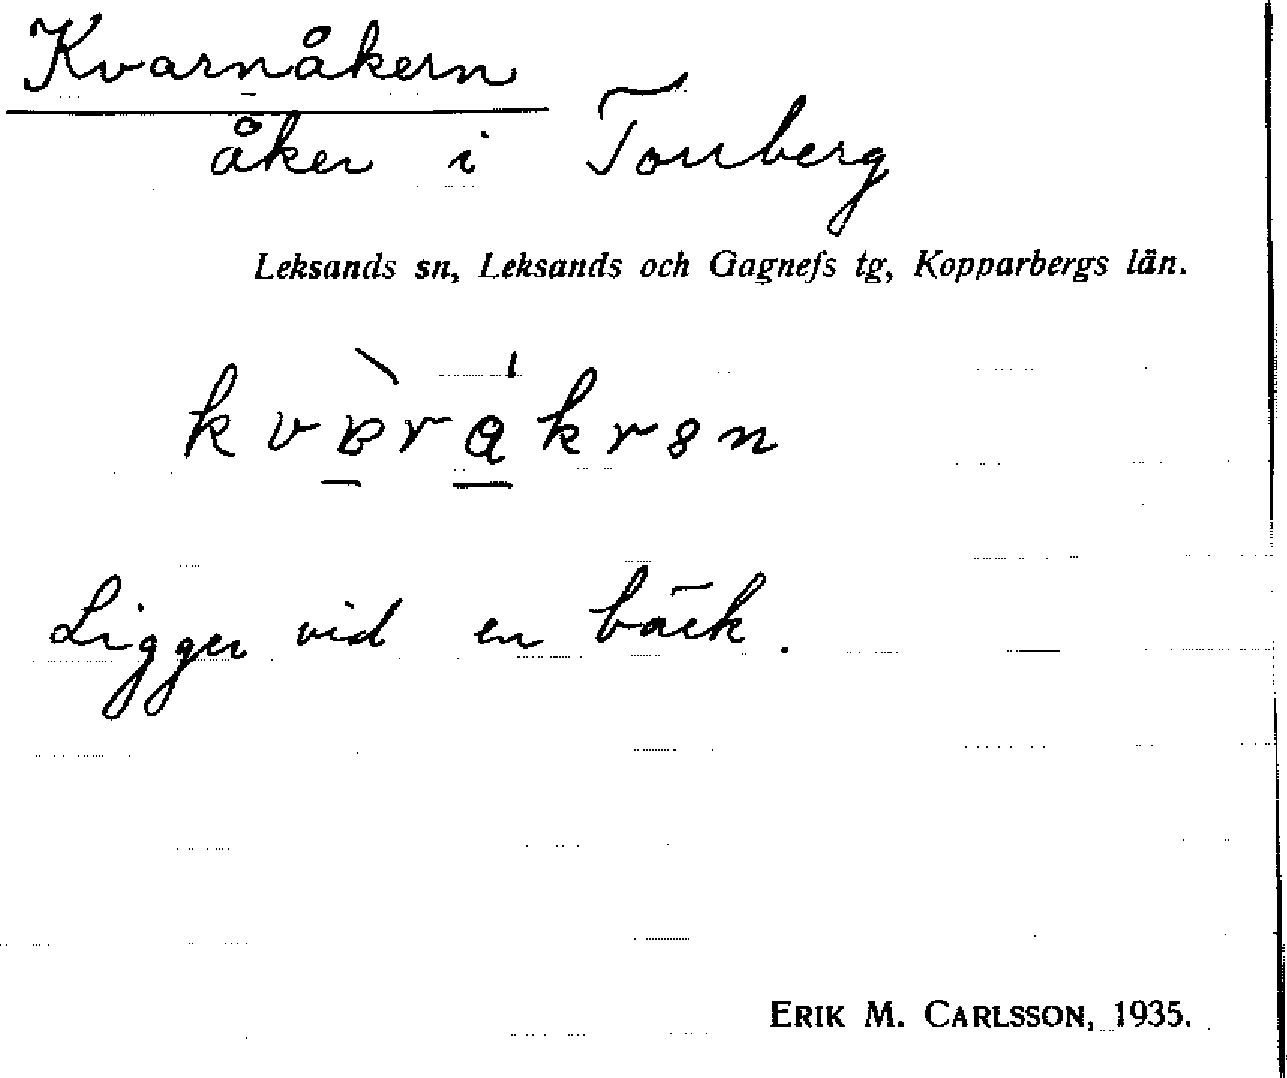 Kvarnåkern
åker i Torrberg
Leksands sn, Leksands och Gagnefs tg, Kopparbergs län.
Ligger vid en bäck.
ERIK M. CARLSSON, 1935.